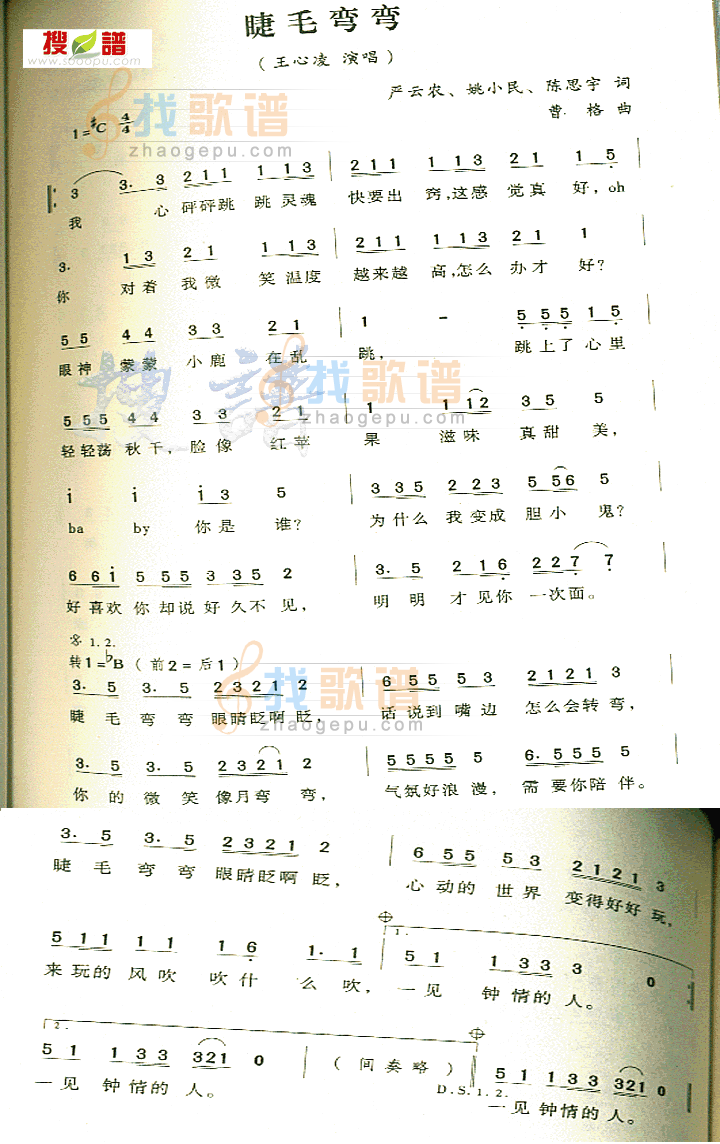 搜谱
www.sooopu.com
睫毛弯弯
(王心凌 演唱)
严云农、姚小民、陈思宇 词
曹 格 曲
找歌谱
zhaogepu.com
1=♯C 4/4
3 3. 3 2 1 1 1 1 1 3 | 2 1 1 1 1 1 3 2 1 1 5
我 心 砰砰跳 跳 灵魂 快要出 窍,这感 觉真 好,oh
3. 1 3 2 1 1 1 3 | 2 1 1 1 1 1 3 2 1 1
你 对着 我微 笑温度 越来越 高,怎么 办才 好?
5 5 4 4 3 3 2 1 | 1 - 5 5 5 1 5
眼神 蒙蒙 小鹿 在乱 跳, 跳上了 心里
找歌谱
zhaogepu.com
5 5 5 4 4 3 3 2 1 | 1 1 1 2 3 5 5
轻轻荡 秋千,脸像 红苹 果 滋味 真甜 美,
i i i 3 5 | 3 3 5 2 2 3 5 5 6 5
ba by 你是 谁? 为什么 我变成 胆小 鬼?
6 6 i 5 5 5 3 3 5 2 | 3. 5 2 1 6 2 2 7 7
好喜欢 你却说 好久不 见, 明 明 才见你 一次面。
𝄋 1.2.
转1=♭B (前2=后1)
找歌谱
zhaogepu.com
3. 5 3. 5 2 3 2 1 2 | 6 5 5 5 3 2 1 2 1 3
睫 毛 弯 弯 眼睛眨啊 眨, 话说到 嘴边 怎么会转 弯,
3. 5 3. 5 2 3 2 1 2 | 5 5 5 5 5 5 6. 5 5 5 5
你 的 微 笑 像月弯 弯, 气氛好浪 漫, 需 要你陪 伴。
3. 5 3. 5 2 3 2 1 2 | 6 5 5 5 3 2 1 2 1 3
睫 毛 弯 弯 眼睛眨啊 眨, 心动的 世界 变得好好 玩,
1.
5 1 1 1 1 1 6 1. 1 | 5 1 1 3 3 3 0
来玩的 风吹 吹什 么吹, 一见 钟情的 人。
2.
5 1 1 3 3 3 2 1 0 | (间奏略) | 5 1 1 3 3 3 2 1 0
D.S.1.2.
一见 钟情的 人。 一见钟情的 人。